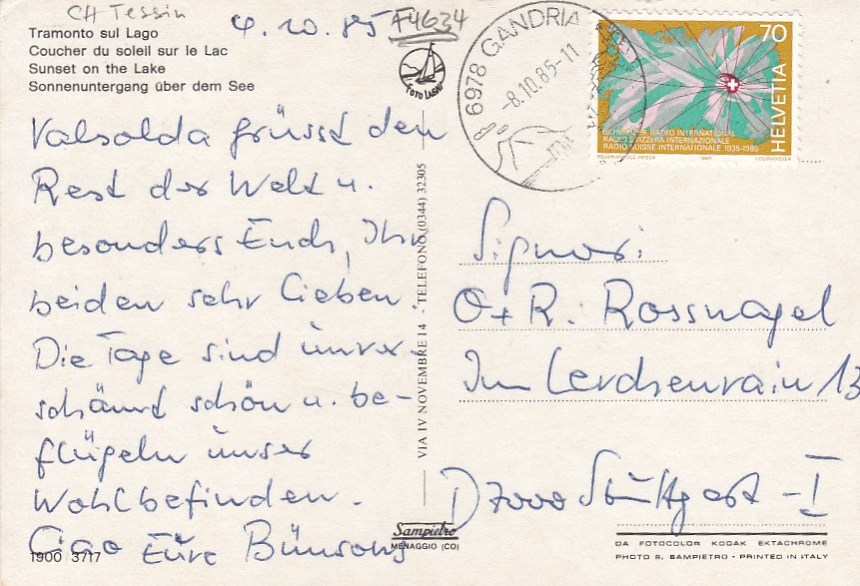 CH Tessin
4.10.85 F4634
Tramonto sul Lago
Coucher du soleil sur le Lac
Sunset on the Lake
Sonnenuntergang über dem See
FOTO LAGHI
6978 GANDRIA
-8.10.85-11
70
HELVETIA
SCHWEIZER RADIO INTERNATIONAL
RADIO SVIZZERA INTERNAZIONALE
RADIO SUISSE INTERNATIONALE 1935-1985
Valsolda grüsst den
Rest der Welt u.
besonders Euch, Ihr
beiden sehr Lieben.
Die Tage sind unver-
schämt schön u. be-
flügeln unser
Wohlbefinden.
Ciao Eure
1900 3717
VIA IV NOVEMBRE 14 - TELEFONO (0344) 32305
Sampietro
MENAGGIO (CO)
Signori
O+R. Rossnagel
Im Lerchenrain 13
D 7000 Stuttgart - I
DA FOTOCOLOR KODAK EKTACHROME
PHOTO S. SAMPIETRO - PRINTED IN ITALY